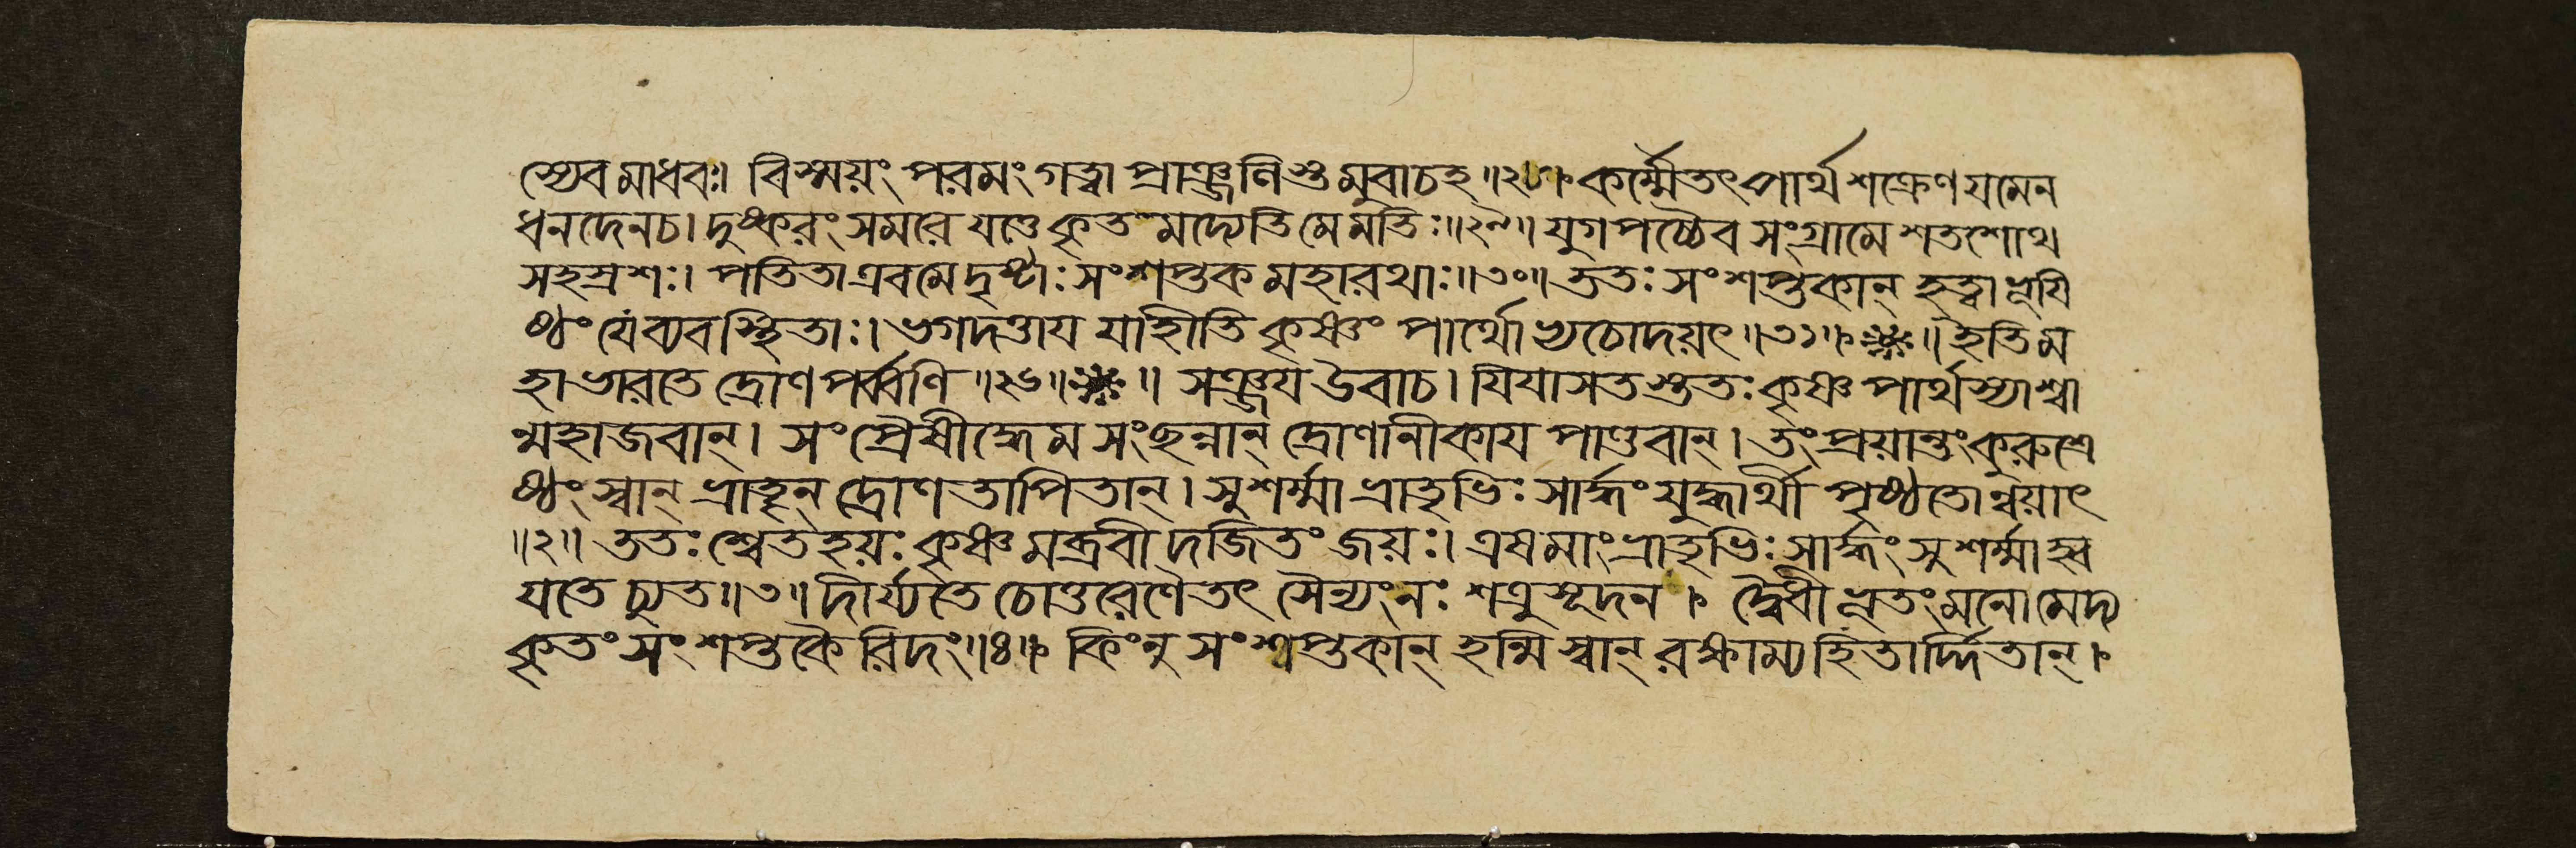 স্যেব মাধবঃ। বিস্ময়ং পরমং গত্বা প্রাঞ্জলিস্তমুবাচহ॥২৮॥ কর্ম্মৈতৎ পার্থ শক্রেণ যমেন
ধনদেনচ। দুষ্করং সমরে যত্তে কৃতমদ্যেতি মে মতিঃ॥২৯॥ যুগপচ্চৈব সংগ্রামে শতশোথ
সহস্রশঃ। পতিতা এবমে দৃষ্টাঃ সংশপ্তক মহারথাঃ॥৩০॥ ততঃ সংশপ্তকান্ হত্বা ভূযি
ষ্ঠং যে ব্যবস্থিতাঃ। ভগদত্তায যাহীতি কৃষ্ণং পার্থোভ্যচোদয়ৎ॥৩১॥ ॥ ইতি ম
হাভারতে দ্রোণপর্ব্বণি॥২৬॥ ॥ সঞ্জয উবাচ। যিযাসতস্ততঃ কৃষ্ণ পার্থস্যাশ্বা
ন্মহাজবান্। সংপ্রৈষীদ্ধেমসংছন্নান্ দ্রোণানীকায পাণ্ডবান্। তং প্রয়ান্তং কুরুশ্রে
ষ্ঠং স্বান্ ভ্রাতৄন্ দ্রোণতাপিতান্। সুশর্ম্মা ভ্রাতৃভিঃ সার্দ্ধং যুদ্ধার্থী পৃষ্ঠতোন্বয়াৎ
॥২॥ ততঃ শ্বেতহয়ঃ কৃষ্ণমব্রবীদজিতং জয়ঃ। এষ মাং ভ্রাতৃভিঃ সার্দ্ধং সুশর্ম্মাহ্ব
যতে চ্যুত॥৩॥ দীর্য্যতে চোত্তরেণৈতৎ সৈন্যং নঃ শত্রুসূদন। দ্বৈধীভূতং মনো মেদ্য
কৃতং সংশপ্তকৈরিদং॥৪॥ কিংনু সংশপ্তকান্ হন্মি স্বান্ রক্ষাম্যহিতার্দ্দিতান্।